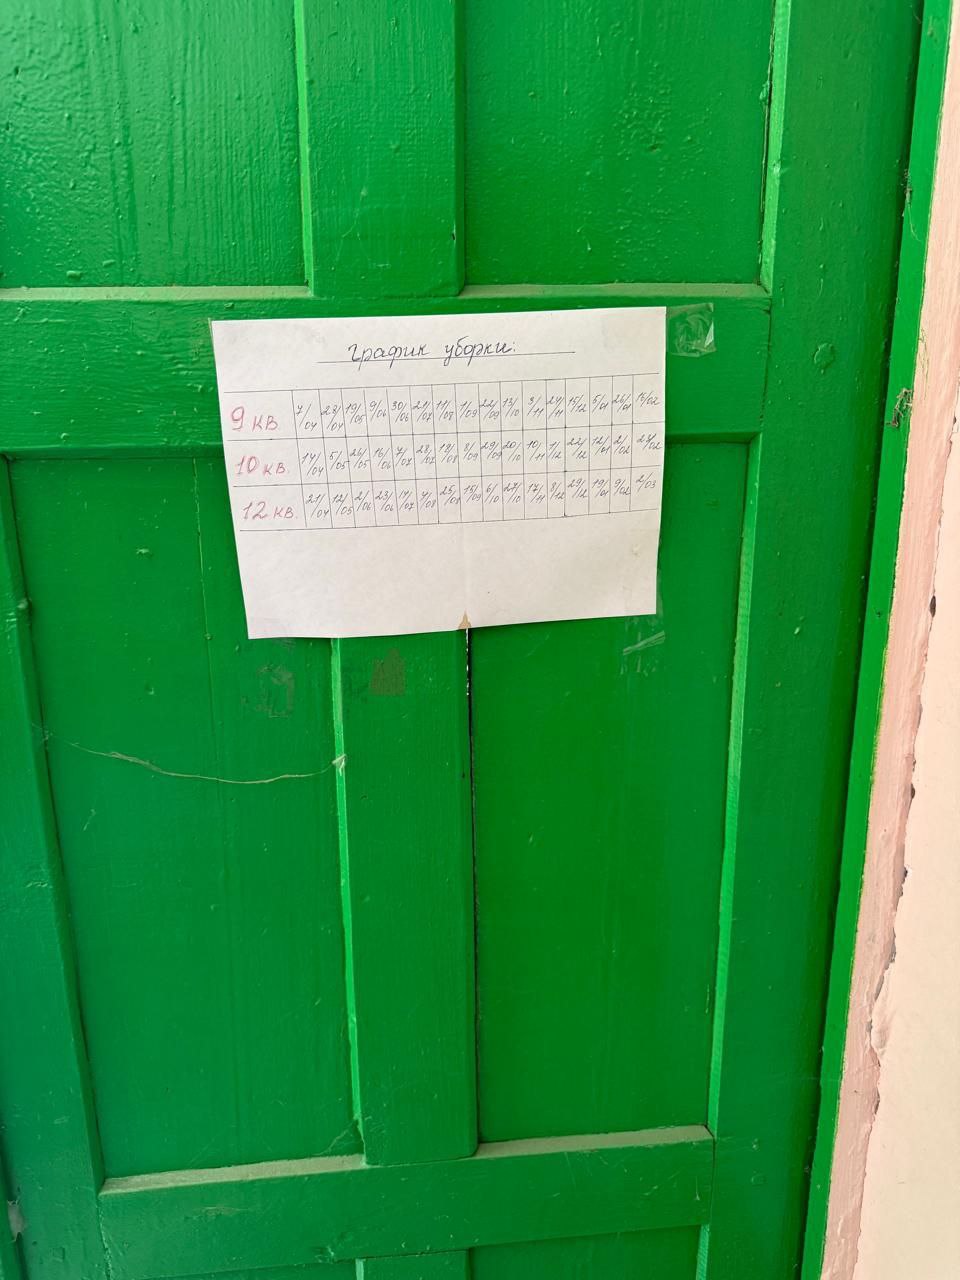 График уборки:
9 кв. 7/04 28/04 19/05 9/06 30/06 21/07 11/08 1/09 22/09 13/10 3/11 24/11 15/12 5/01 26/01 16/02
10 кв. 14/04 5/05 26/05 16/06 7/07 28/07 18/08 8/09 29/09 20/10 10/11 1/12 22/12 12/01 2/02 23/02
12 кв. 21/04 12/05 2/06 23/06 14/07 4/08 25/08 15/09 6/10 27/10 17/11 8/12 29/12 19/01 9/02 2/03